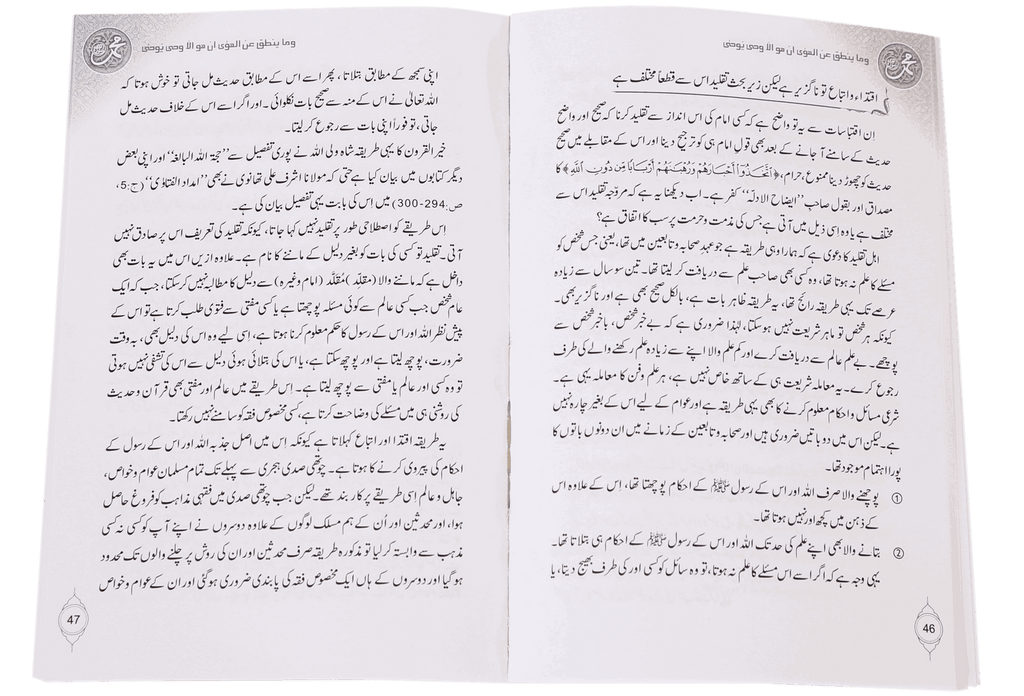 وما ینطق عن الهوٰی ان هو الا وحی یوحٰی
اقتداء و اتباع تو ناگزیر ہے لیکن زیر بحث تقلید اس سے قطعاً مختلف ہے
اِن اقتباسات سے یہ تو واضح ہے کہ کسی امام کی اس انداز سے تقلید کرنا کہ صحیح اور واضح
حدیث کے سامنے آ جانے کے بعد بھی قولِ امام ہی کو ترجیح دینا اور اس کے مقابلے میں صحیح
حدیث کو چھوڑ دینا ممنوع، حرام، ﴿اتَّخَذُوٓا اَحْبَارَهُمْ وَرُهْبَٰنَهُمْ اَرْبَابًا مِّن دُونِ اللّٰهِ﴾ کا
مصداق اور بقول صاحبِ ’’ایضاح الادلہ‘‘ کفر ہے۔ اب دیکھنا یہ ہے کہ مروّجہ تقلید اس سے
مختلف ہے یا وہ اسی ذیل میں آتی ہے جس کی مذمت و حرمت پر سب کا اتفاق ہے؟
اہل تقلید کا دعویٰ ہے کہ ہمارا وہی طریقہ ہے جو عہدِ صحابہ و تابعین میں تھا، یعنی جس شخص کو
مسئلے کا علم نہ ہوتا تھا، وہ کسی بھی صاحب علم سے دریافت کر لیتا تھا۔ تین سو سال سے زیادہ
عرصے تک یہی طریقہ رائج تھا، یہ طریقہ ظاہر بات ہے، بالکل صحیح بھی ہے اور ناگزیر بھی۔
کیونکہ ہر شخص تو ماہر شریعت نہیں ہو سکتا، لہٰذا ضروری ہے کہ بے خبر شخص، باخبر شخص سے
پوچھے۔ بے علم عالم سے دریافت کرے اور کم علم والا اپنے سے زیادہ علم رکھنے والے کی طرف
رجوع کرے۔ یہ معاملہ شریعت ہی کے ساتھ خاص نہیں ہے، ہر علم و فن کا معاملہ یہی ہے۔
شرعی مسائل و احکام معلوم کرنے کا بھی یہی طریقہ ہے اور عوام کے لیے اس کے بغیر چارہ نہیں
ہے۔ لیکن اس میں دو باتیں ضروری ہیں اور صحابہ و تابعین کے زمانے میں ان دونوں باتوں کا
پورا اہتمام موجود تھا۔
① پوچھنے والا صرف اللہ اور اس کے رسول ﷺ کے احکام پوچھتا تھا، اِس کے علاوہ اس
کے ذہن میں کچھ اور نہیں ہوتا تھا۔
② بتانے والا بھی اپنے علم کی حد تک اللہ اور اس کے رسول ﷺ کے احکام ہی بتلاتا تھا۔
یہی وجہ ہے کہ اگر اسے اس مسئلے کا علم نہ ہوتا، تو وہ سائل کو کسی اور کی طرف بھیج دیتا، یا
46
وما ینطق عن الهوٰی ان هو الا وحی یوحٰی
اپنی سمجھ کے مطابق بتلاتا، پھر اسے اس کے مطابق حدیث مل جاتی تو خوش ہوتا کہ
اللہ تعالیٰ نے اس کے منہ سے صحیح بات نکلوائی۔ اور اگر اسے اس کے خلاف حدیث مل
جاتی، تو فوراً اپنی بات سے رجوع کر لیتا۔
خیر القرون کا یہی طریقہ شاہ ولی اللہ نے پوری تفصیل سے ’’حجۃ اللہ البالغہ‘‘ اور اپنی بعض
دیگر کتابوں میں بیان کیا ہے حتیٰ کہ مولانا اشرف علی تھانوی نے بھی ’’امداد الفتاوٰی‘‘ (ج:5،
ص:294-300) میں اس کی بابت یہی تفصیل بیان کی ہے۔
اِس طریقے کو اصطلاحی طور پر تقلید نہیں کہا جاتا، کیونکہ تقلید کی تعریف اس پر صادق نہیں
آتی۔ تقلید تو کسی کی بات کو بغیر دلیل کے ماننے کا نام ہے۔ علاوہ ازیں اس میں یہ بات بھی
داخل ہے کہ ماننے والا (مقلِد) مُقلَّد (امام وغیرہ) سے دلیل کا مطالبہ نہیں کر سکتا، جب کہ ایک
عام شخص جب کسی عالم سے کوئی مسئلہ پوچھتا ہے یا کسی مفتی سے فتویٰ طلب کرتا ہے تو اس کے
پیش نظر اللہ اور اس کے رسول کا حکم معلوم کرنا ہوتا ہے، اِسی لیے وہ اس کی دلیل بھی، بہ وقت
ضرورت، پوچھ لیتا ہے اور پوچھ سکتا ہے، یا اس کی بتلائی ہوئی دلیل سے اس کی تشفی نہیں ہوتی
تو وہ کسی اور عالم یا مفتی سے پوچھ لیتا ہے۔ اِس طریقے میں عالم اور مفتی بھی قرآن و حدیث
کی روشنی ہی میں مسئلے کی وضاحت کرتا ہے، کسی مخصوص فقہ کو سامنے نہیں رکھتا۔
یہ طریقہ اقتدا اور اتباع کہلاتا ہے کیونکہ اِس میں اصل جذبہ اللہ اور اس کے رسول کے
احکام کی پیروی کرنے کا ہوتا ہے۔ چوتھی صدی ہجری سے پہلے تک تمام مسلمان عوام و خواص،
جاہل و عالم اِسی طریقے پر کار بند تھے۔ لیکن جب چوتھی صدی میں فقہی مذاہب کو فروغ حاصل
ہوا، اور محدثین اور اُن کے ہم مسلک لوگوں کے علاوہ دوسروں نے اپنے آپ کو کسی نہ کسی
مذہب سے وابستہ کر لیا تو مذکورہ طریقہ صرف محدثین اور ان کی روش پر چلنے والوں تک محدود
ہو گیا اور دوسروں کے ہاں ایک مخصوص فقہ کی پابندی ضروری ہو گئی اور ان کے عوام و خواص
47